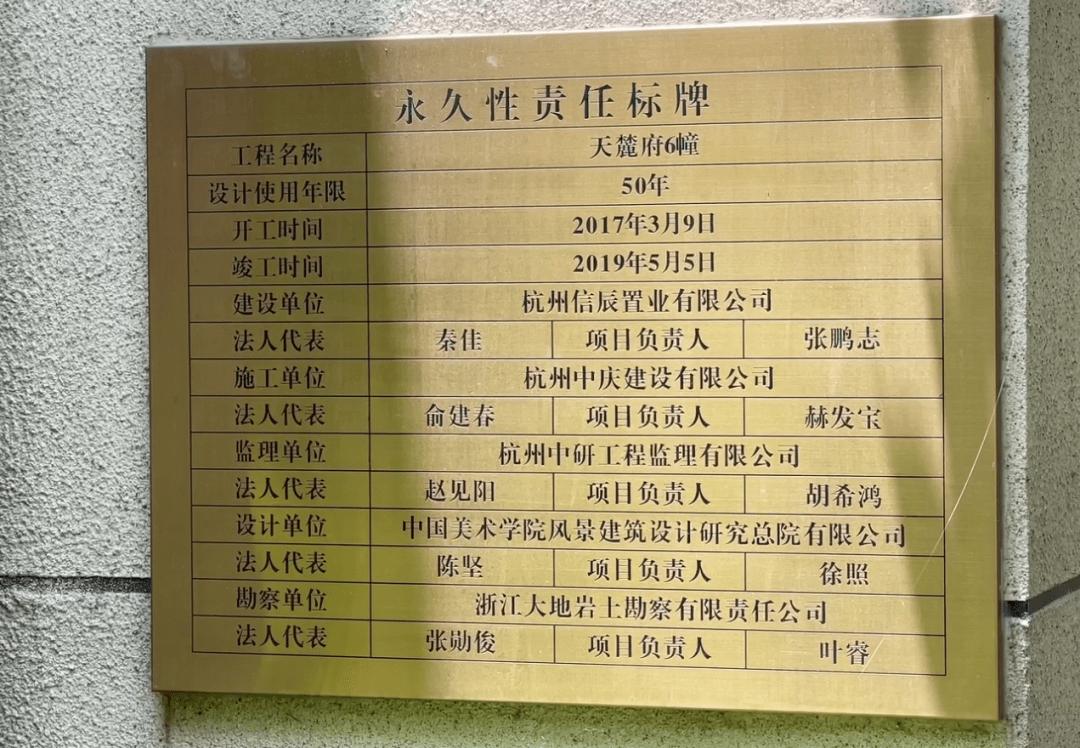 永久性责任标牌
工程名称 天麓府6幢
设计使用年限 50年
开工时间 2017年3月9日
竣工时间 2019年5月5日
建设单位 杭州信辰置业有限公司
法人代表 秦佳 项目负责人 张鹏志
施工单位 杭州中庆建设有限公司
法人代表 俞建春 项目负责人 赫发宝
监理单位 杭州中研工程监理有限公司
法人代表 赵见阳 项目负责人 胡希鸿
设计单位 中国美术学院风景建筑设计研究总院有限公司
法人代表 陈坚 项目负责人 徐照
勘察单位 浙江大地岩土勘察有限责任公司
法人代表 张勋俊 项目负责人 叶睿